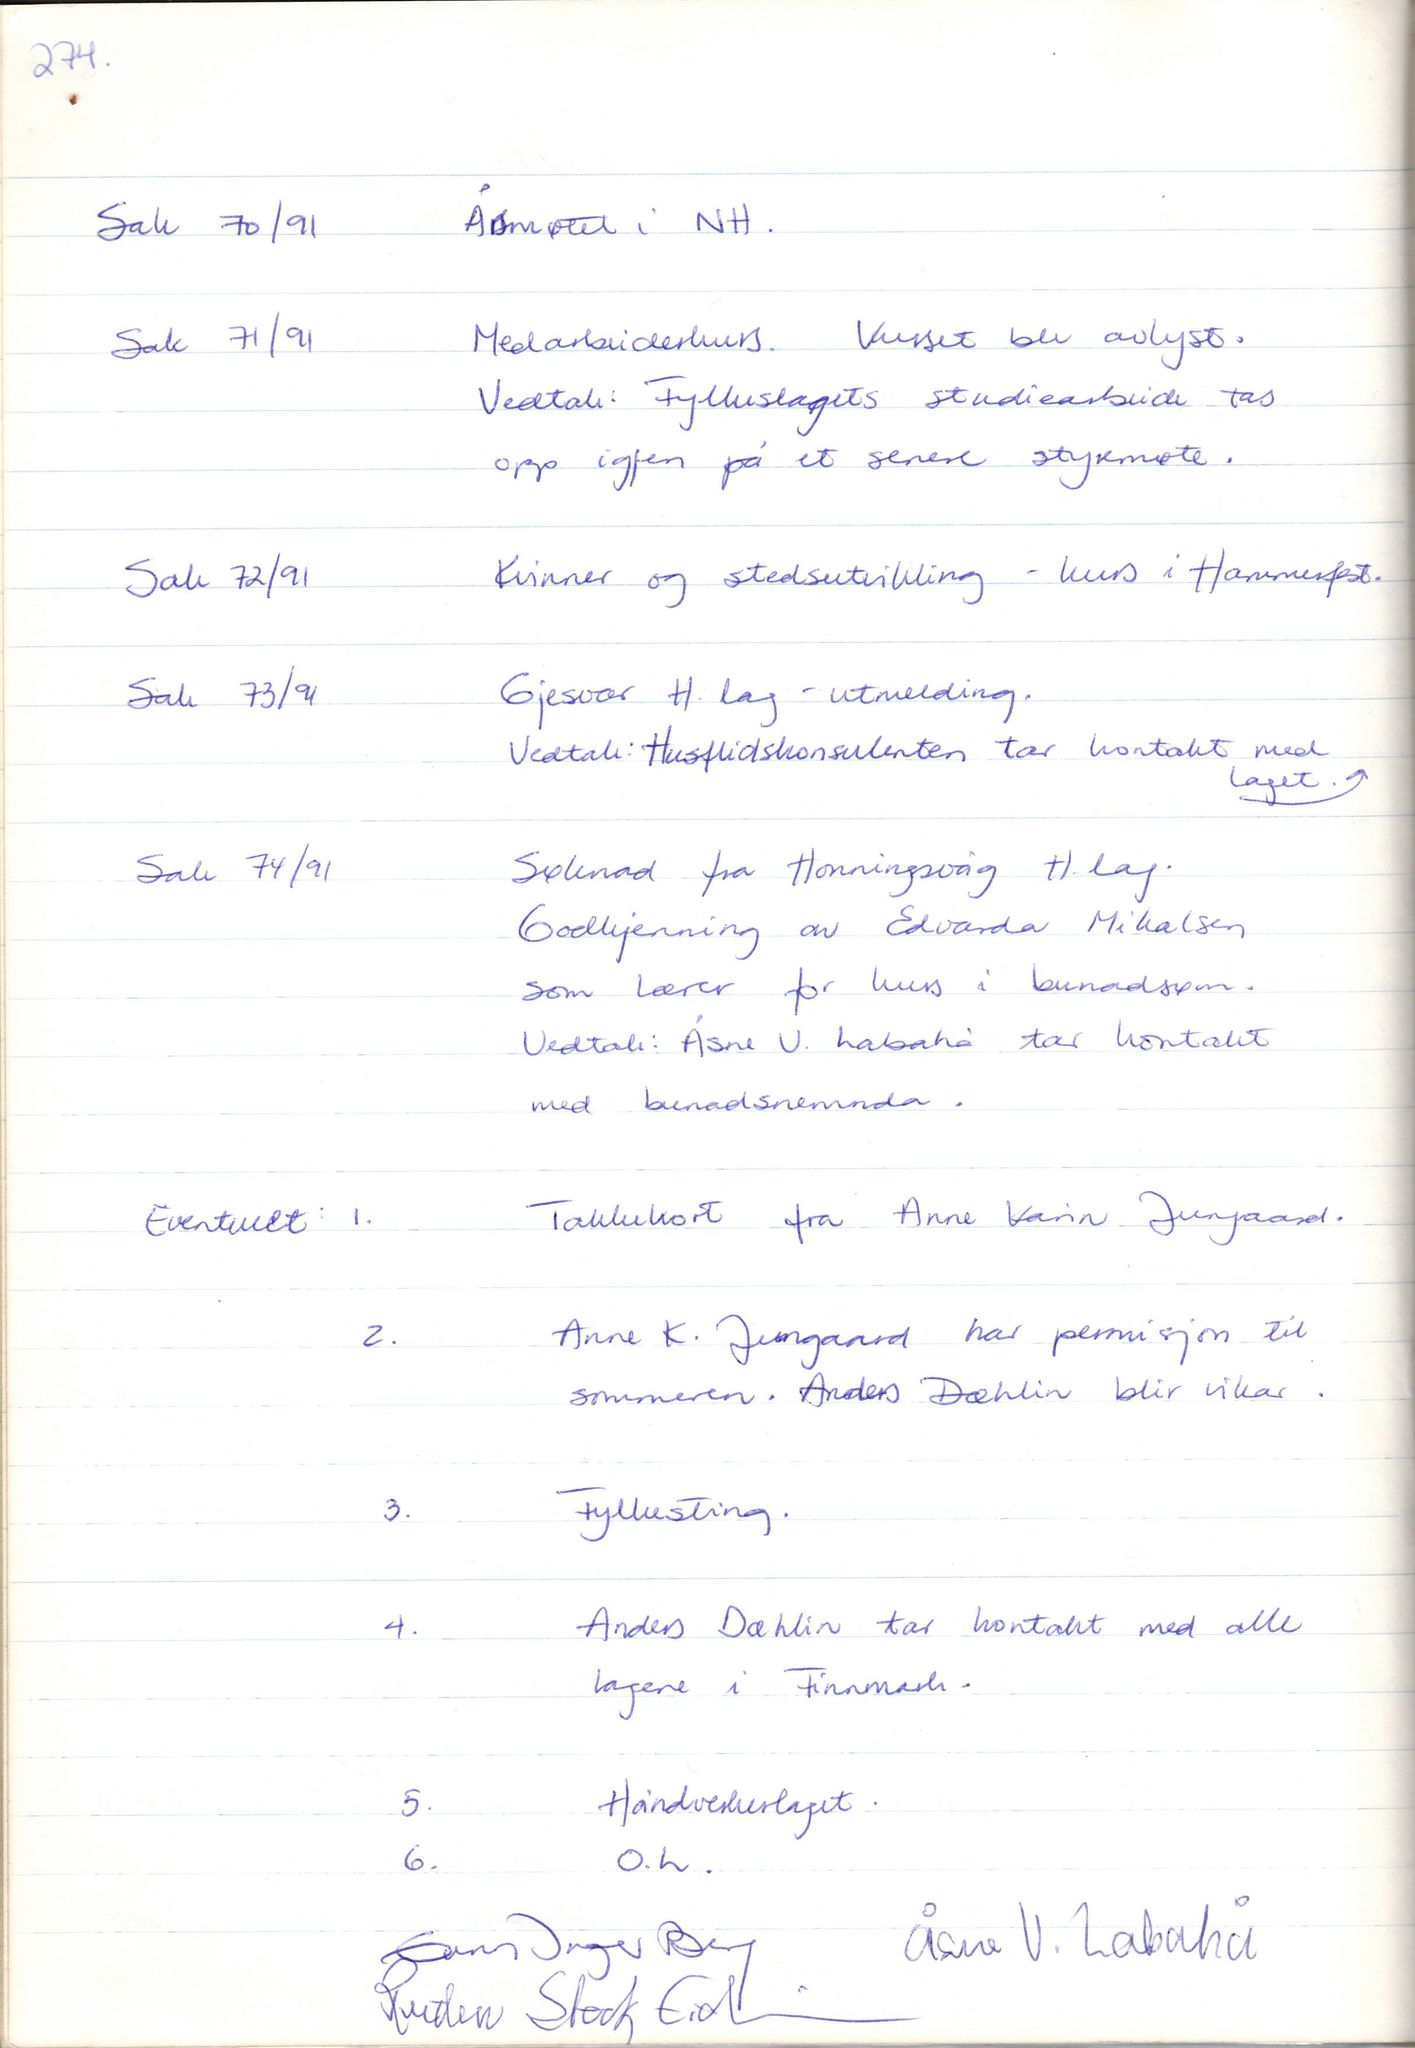 274.
Sak 70/91 Årsmøtet i NH.
Sak 71/91 Medarbeiderkurs. Kurset ble avlyst.
Vedtak: Fylkeslagets studiearbeide tas
opp igjen på et senere styremøte.
Sak 72/91 Kvinner og stedsutvikling - kurs i Hammerfest.
Sak 73/91 Gjesvær H.lag - utmelding.
Vedtak: Husflidskonsulenten tar kontakt med
laget.
Sak 74/91 Søknad fra Honningsvåg H.lag.
Godkjenning av Edvarda Mikalsen
som lærer for kurs i bunadsøm.
Vedtak: Åsne V. Labahå tar kontakt
med bunadsnemnda.
Eventuelt: 1. Takkekort fra Anne Karin Jungaard.
2. Anne K. Jungaard har permisjon til
sommeren. Anders Dæhlin blir vikar.
3. Fylkesting.
4. Anders Dæhlin tar kontakt med alle
lagene i Finnmark.
5. Håndverkerlaget.
6. O.L.
Inger Berg Åsne V. Labahå